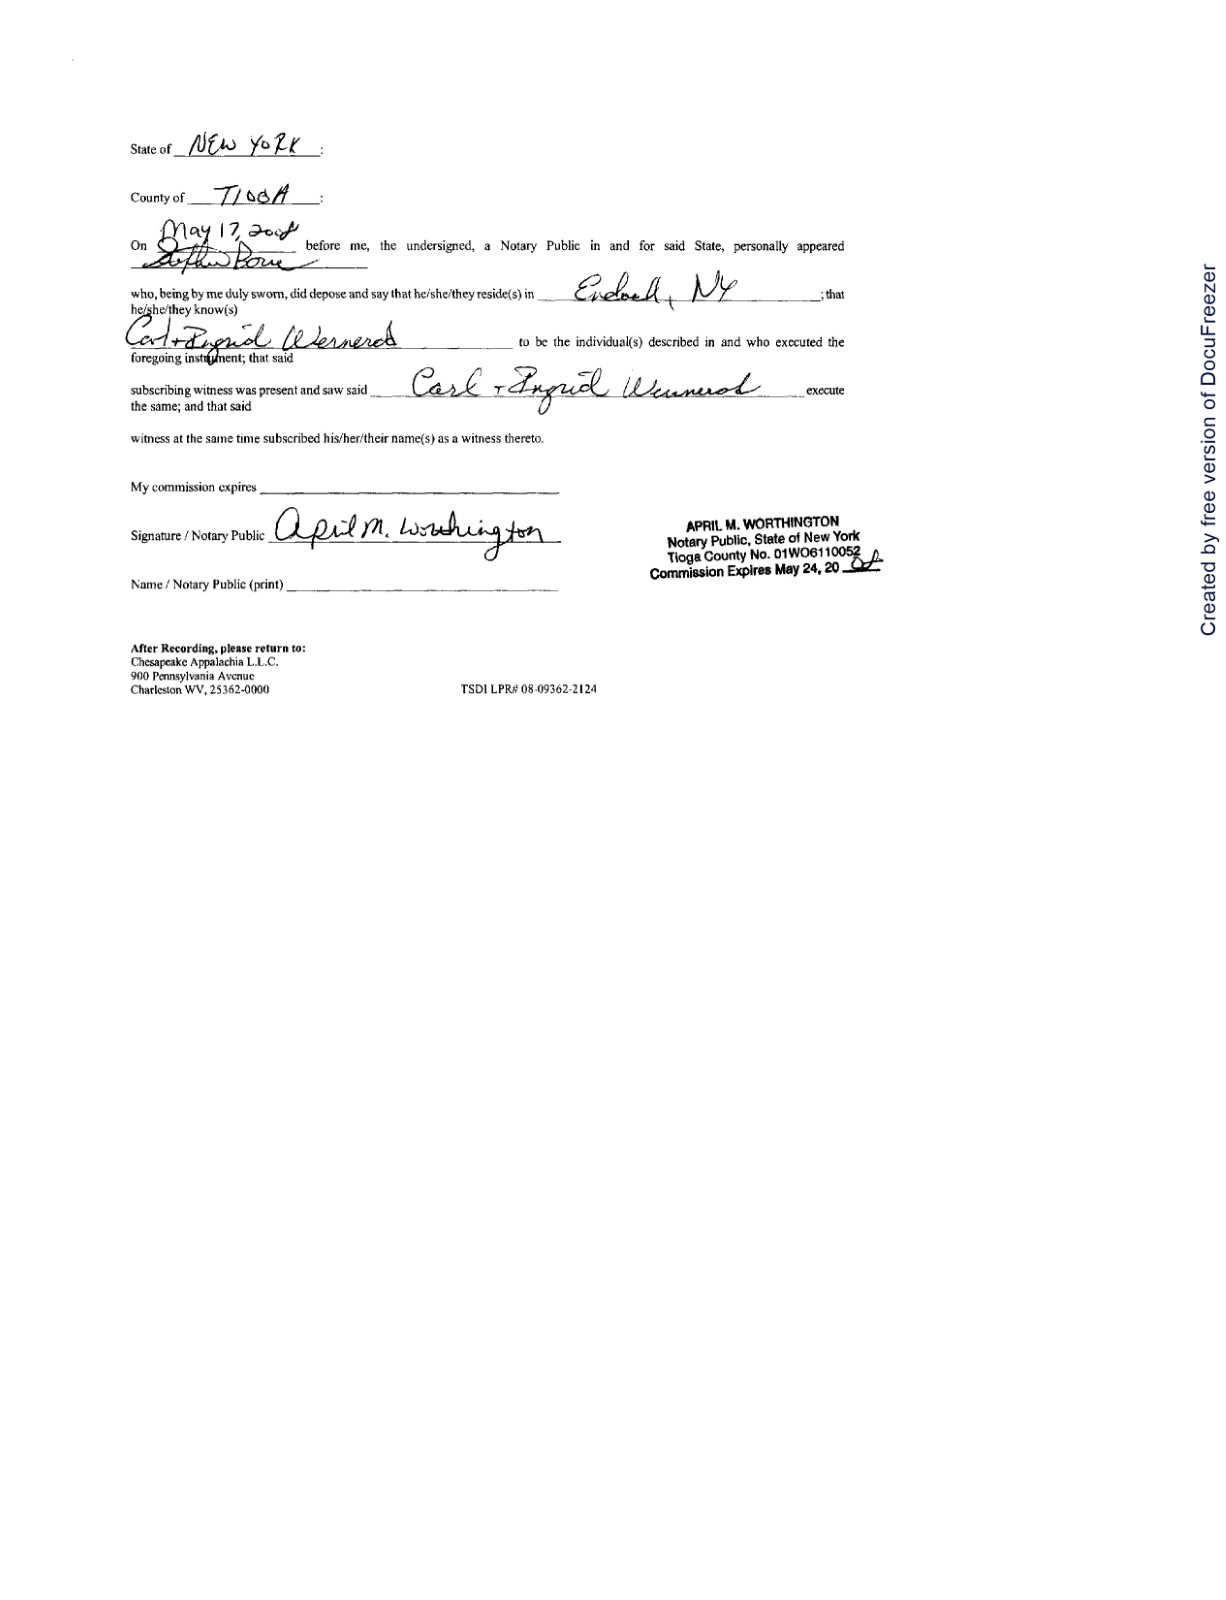 State of NEW YORK :
County of TIOGA :
May 17, 2008
On before me, the undersigned, a Notary Public in and for said State, personally appeared
who, being by me duly sworn, did depose and say that he/she/they reside(s) in Endwell, NY ; that
he/she/they know(s)
Carl + Ingrid Wennerod to be the individual(s) described in and who executed the
foregoing instrument; that said
subscribing witness was present and saw said Carl + Ingrid Wennerod execute
the same; and that said
witness at the same time subscribed his/her/their name(s) as a witness thereto.
My commission expires
Signature / Notary Public April M. Worthington
Name / Notary Public (print)
APRIL M. WORTHINGTON
Notary Public, State of New York
Tioga County No. 01WO6110052
Commission Expires May 24, 20
After Recording, please return to:
Chesapeake Appalachia L.L.C.
900 Pennsylvania Avenue
Charleston WV, 25362-0000
TSDI LPR# 08-09362-2124
Created by free version of DocuFreezer